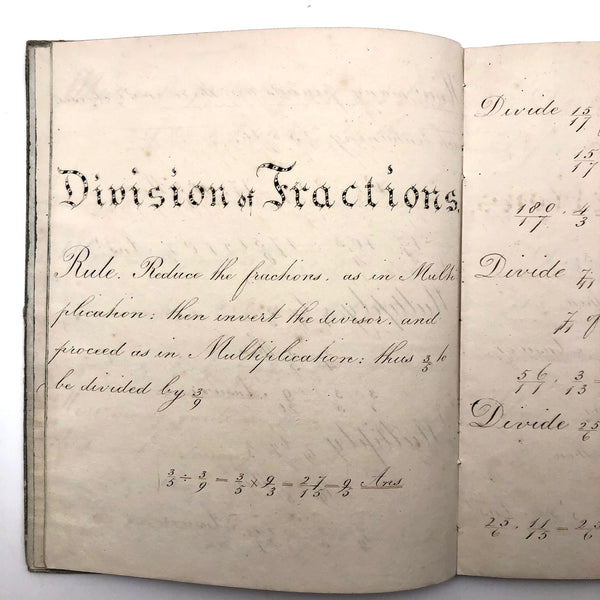 Division of Fractions.
Rule. Reduce the fractions, as in Multi
plication; then invert the divisor, and
proceed as in Multiplication; thus 3/5 to
be divided by 3/9
3/5 ÷ 3/9 = 3/5 × 9/3 = 27/15 = 9/5 Ans
Divide 15/17
15/17
180/17 . 4/3
Divide 7/11
7/11 9
56/11 . 3/13
Divide 25/6
25/6 . 11/15 = 25